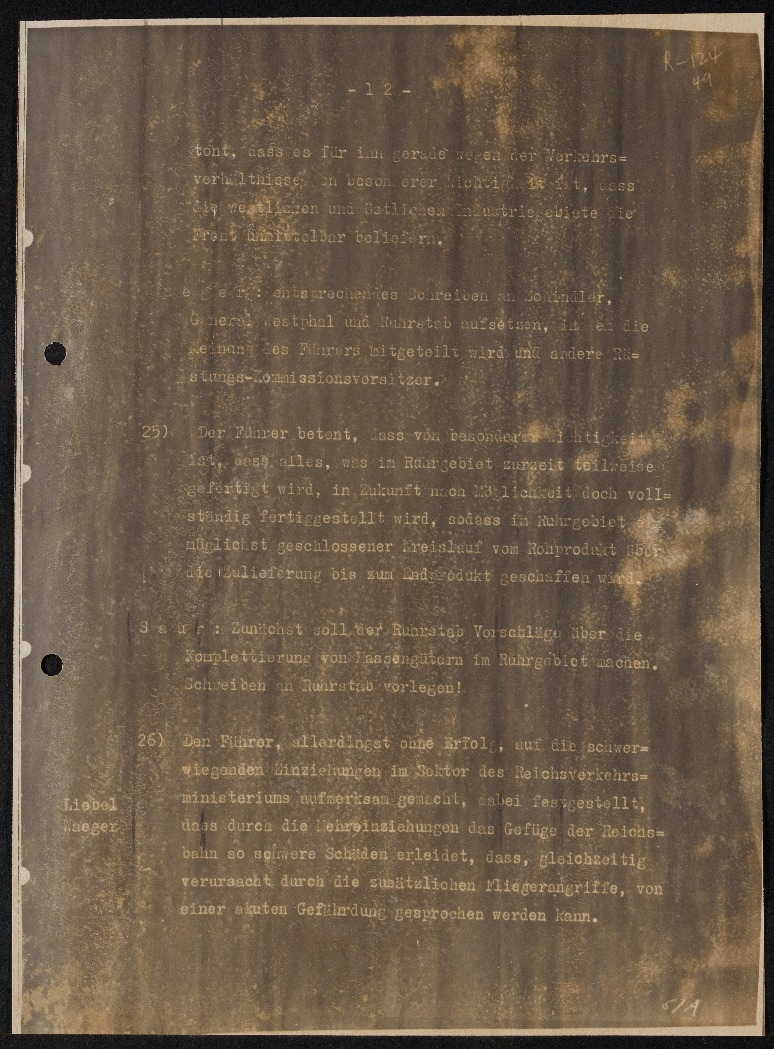 R-124
49
- 1 2 -
tont, dass es für ihn gerade wegen der Verkehrs=
verhältnisse von besonderer Wichtigkeit ist, dass
die westlichen und östlichen Industriegebiete die
Front unmittelbar beliefern.
entsprechendes Schreiben an Schindler,
General Westphal und Ruhrstab aufsetzen, in dem die
Meinung des Führers mitgeteilt wird und andere Rü=
stungs-Kommissionsvorsitzer.
25) Der Führer betont, dass von besonderer Wichtigkeit
ist, dass alles, was im Ruhrgebiet zurzeit teilweise
gefertigt wird, in Zukunft nach Möglichkeit doch voll=
ständig fertiggestellt wird, sodass im Ruhrgebiet
möglichst geschlossener Kreislauf vom Rohprodukt über
die Zulieferung bis zum Endprodukt geschaffen wird.
S a u r : Zunächst soll der Ruhrstab Vorschläge über die
Komplettierung von Massengütern im Ruhrgebiet machen.
Schreiben an Ruhrstab vorlegen!
26) Den Führer, allerdingst ohne Erfolg, auf die schwer=
wiegenden Einziehungen im Sektor des Reichsverkehrs=
Liebel ministeriums aufmerksam gemacht, dabei festgestellt,
Waeger dass durch die Mehreinziehungen das Gefüge der Reichs-
bahn so schwere Schäden erleidet, dass, gleichzeitig
verursacht durch die zusätzlichen Fliegerangriffe, von
einer akuten Gefährdung gesprochen werden kann.